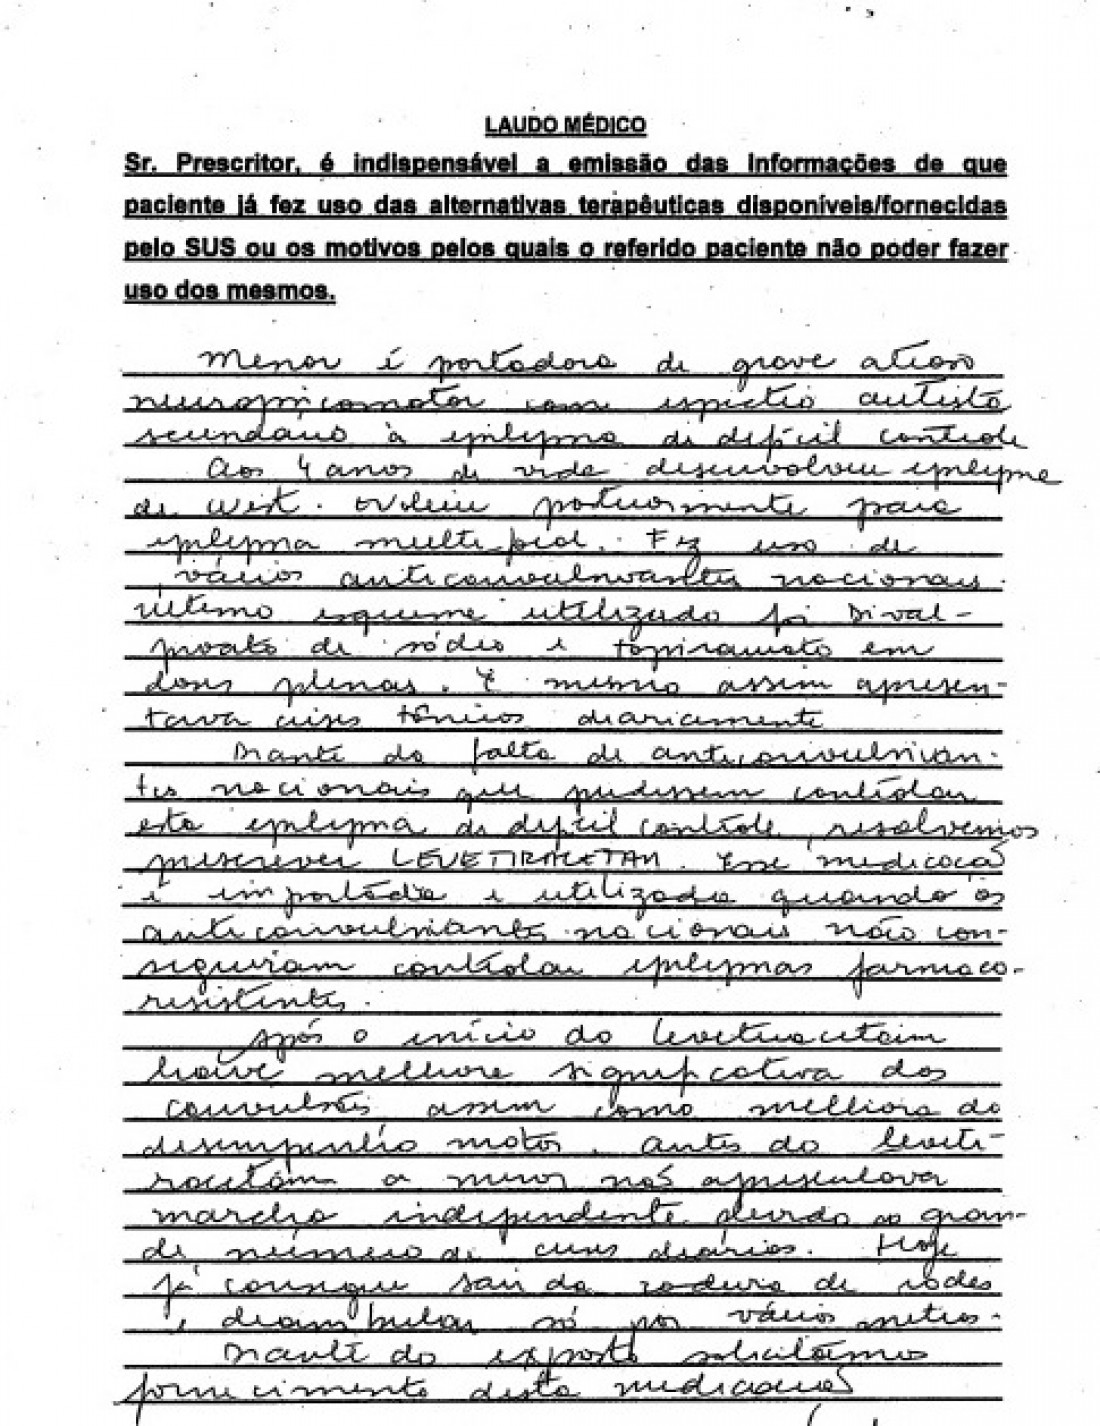 LAUDO MÉDICO
Sr. Prescritor, é indispensável a emissão das Informações de que
paciente já fez uso das alternativas terapêuticas disponíveis/fornecidas
pelo SUS ou os motivos pelos quais o referido paciente não poder fazer
uso dos mesmos.
Menor é portadora de grave atraso
neuropsicomotor com espectro autista
secundário à epilepsia de difícil controle
Aos 4 anos de vida desenvolveu epilepsia
de West. Evoluiu posteriormente para
epilepsia multifocal. Fez uso de
vários anticonvulsivantes nacionais.
último esquema utilizado foi Dival-
proato de sódio e topiramato em
doses plenas. E mesmo assim apresen-
tava crises tônicas diariamente
Diante da falta de anticonvulsivan-
tes nacionais que pudessem controlar
esta epilepsia de difícil controle, resolvemos
prescrever LEVETIRACETAM. Esse medicação
é importada e utilizada quando os
anticonvulsivantes nacionais não con-
seguiram controlar epilepsias farmaco-
resistentes.
Após o início do levetiracetam
houve melhora significativa das
convulsões assim como melhora do
desempenho motor. Antes do leveti-
racetam a menor não apresentava
marcha independente devido ao gran-
de número de crises diárias. Hoje
já consegue sair da cadeira de rodas
e deambular só por vários metros.
Diante do exposto solicitamos
fornecimento desta medicação